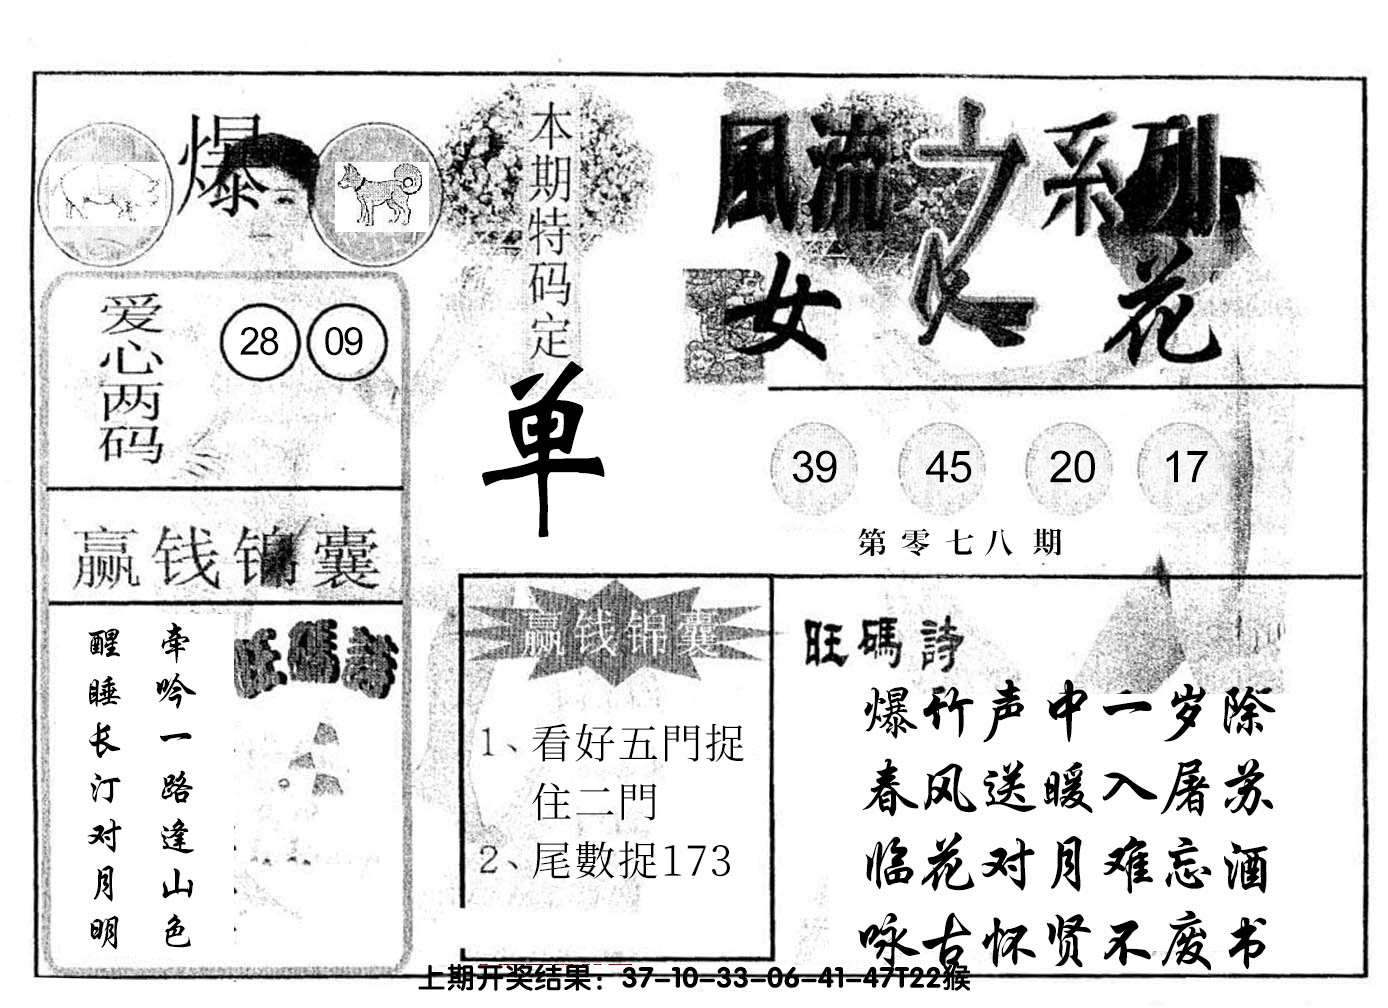 爆
本期特码定
单
風流之系列
女人花
爱心两码
28 09
39 45 20 17
第零七八期
赢钱锦囊
牵吟一路逢山色
醒睡长汀对月明
旺碼詩
赢钱锦囊
1、看好五門捉
住二門
2、尾數捉173
旺碼詩
爆竹声中一岁除
春风送暖入屠苏
临花对月难忘酒
咏古怀贤不废书
上期开奖结果：37-10-33-06-41-47T22猴